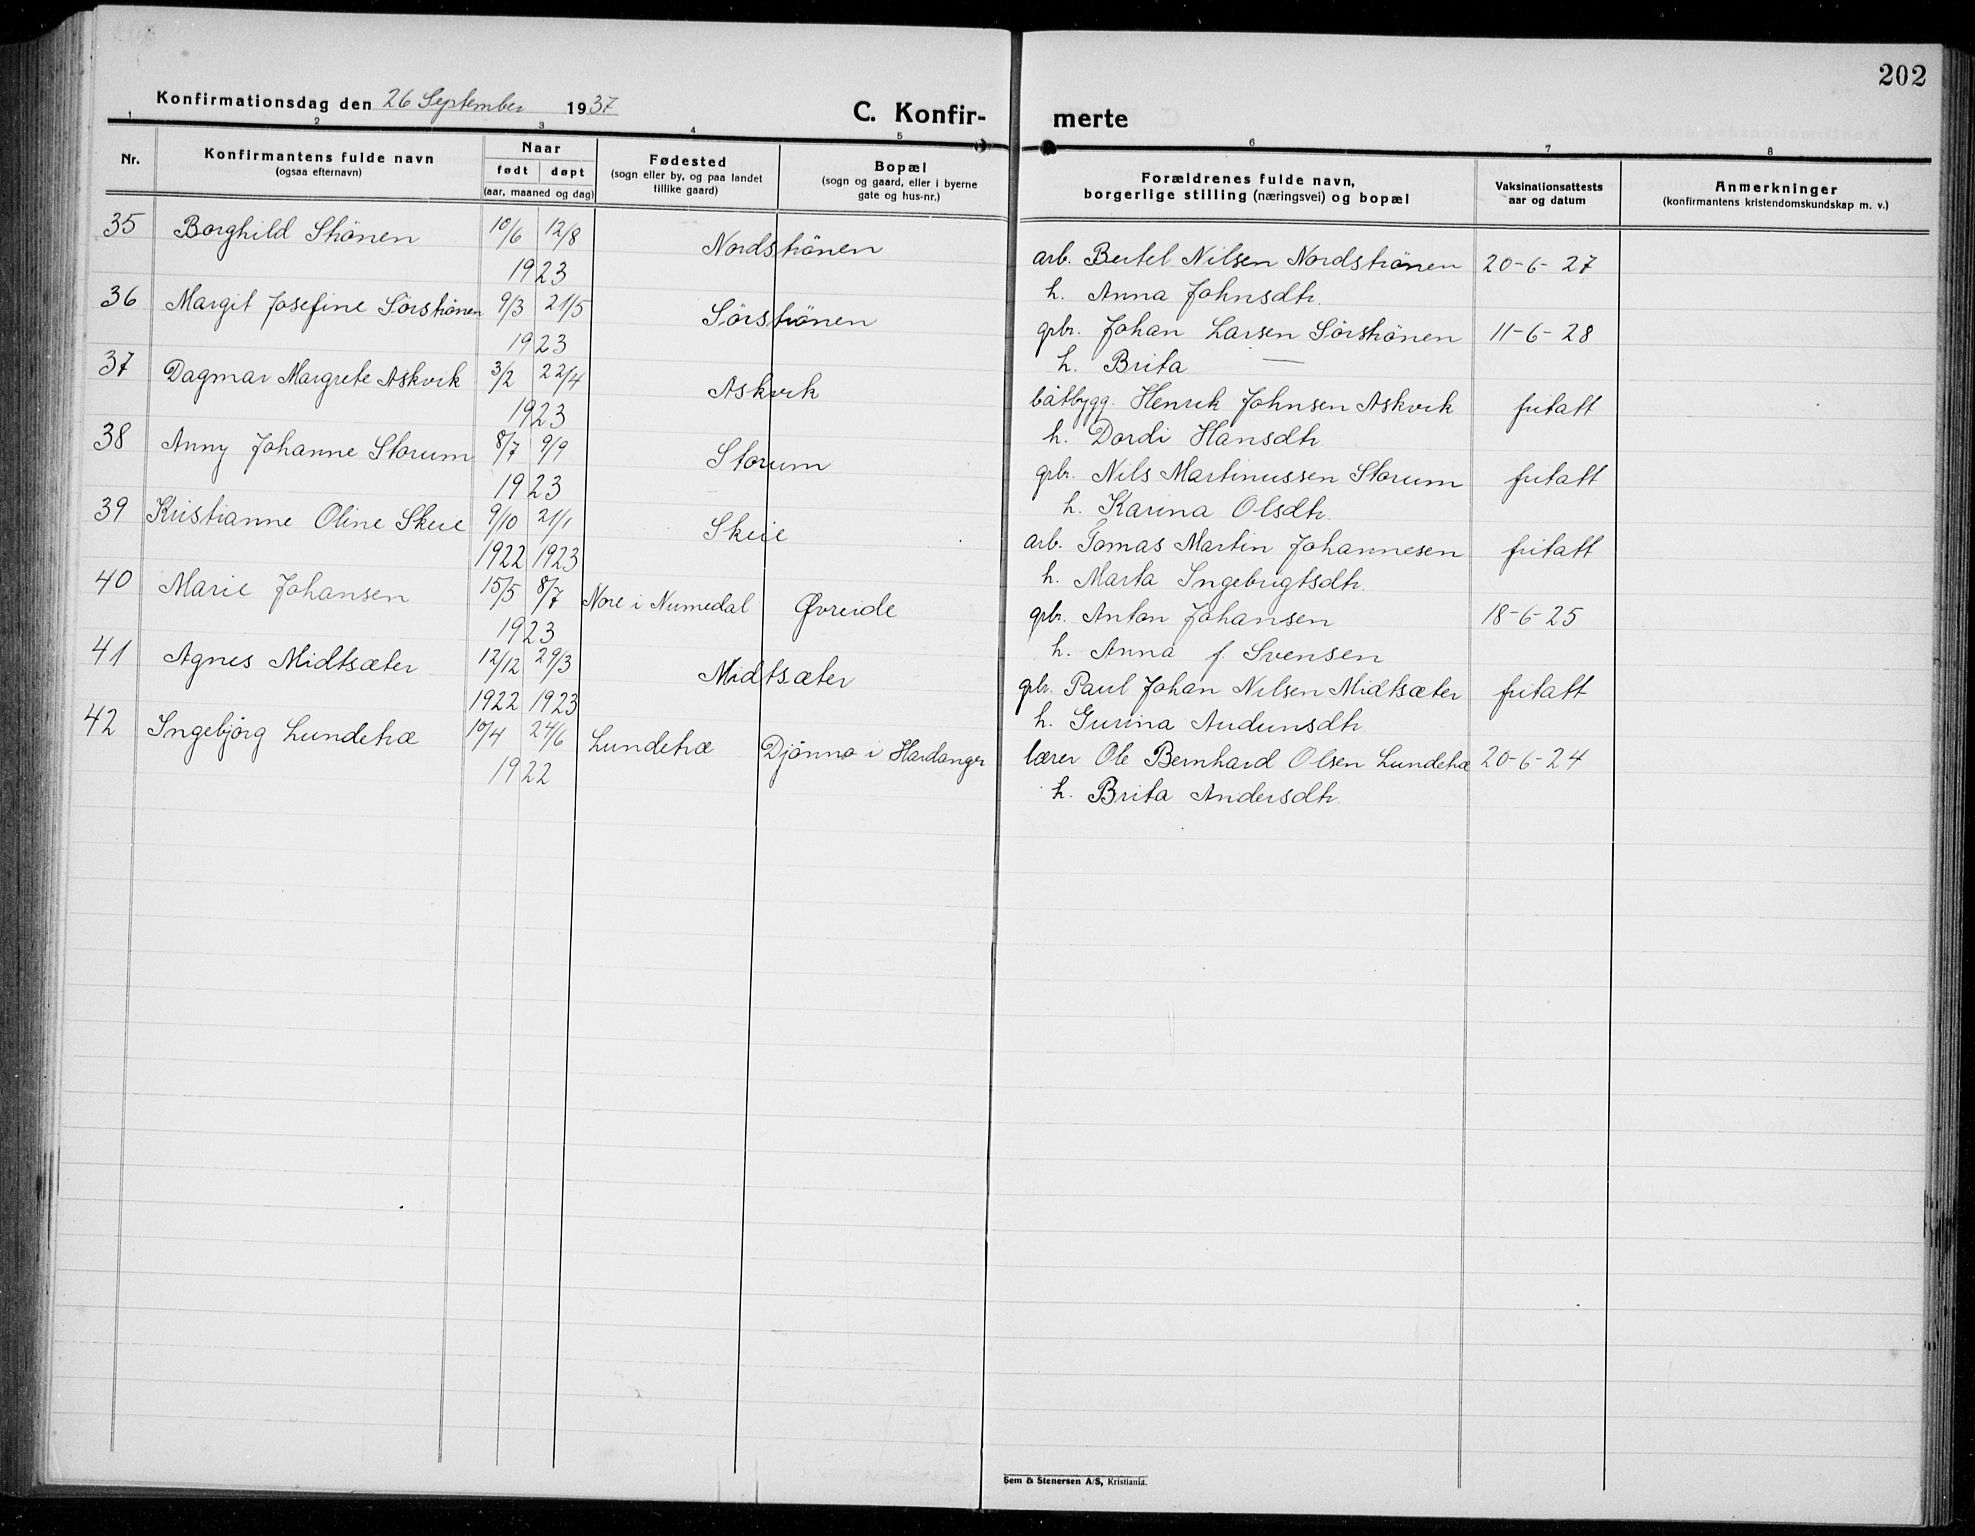 202
Konfirmationsdag den 26 September 1937
C. Konfir- merte
1 2 3 4 5 6 7 8
Nr.
Konfirmantens fulde navn
(ogsaa efternavn)
Naar
født døpt
(aar, maaned og dag)
Fødested
(sogn eller by, og paa landet
tillike gaard)
Bopæl
(sogn og gaard, eller i byerne
gate og hus-nr.)
Forældrenes fulde navn,
borgerlige stilling (næringsvei) og bopæl
Vaksinationsattests
aar og datum
Anmerkninger
(konfirmantens kristendomskundskap m. v.)
35 Borghild Strönen 10/6 12/8 Nordströnen arb. Bertel Nilsen Nordströnen 20-6-27
1923 h. Anna Johnsdtr.
36 Margit Josefine Sörströnen 9/3 21/5 Sörströnen grbr. Johan Larsen Sörströnen 11-6-28
1923 h. Brita —
37 Dagmar Margrete Askvik 3/2 22/4 Askvik båtbygg. Henrik Johnsen Askvik fritatt
1923 h. Dordi Hansdtr.
38 Anny Johanne Storum 8/7 9/9 Storum grbr. Nils Martinussen Storum fritatt
1923 h. Karina Olsdtr.
39 Kristianne Oline Skeie 9/10 21/1 Skeie arb. Tomas Martin Johannesen fritatt
1922 1923 h. Marta Ingebrigtsdtr.
40 Marie Johansen 15/5 8/7 Nore i Numedal Øvreide grbr. Anton Johansen 18-6-25
1923 h. Anna f. Svensen
41 Agnes Midtsæter 12/12 29/3 Midtsæter grbr. Paul Johan Nilsen Midtsæter fritatt
1922 1923 h. Gurina Audunsdtr.
42 Ingebjörg Lundetræ 10/4 24/6 Lundetræ Djönno i Hardanger lærer Ole Bernhard Olsen Lundetræ 20-6-24
1922 h. Brita Andersdtr.
Sem & Stenersen A/S, Kristiania.